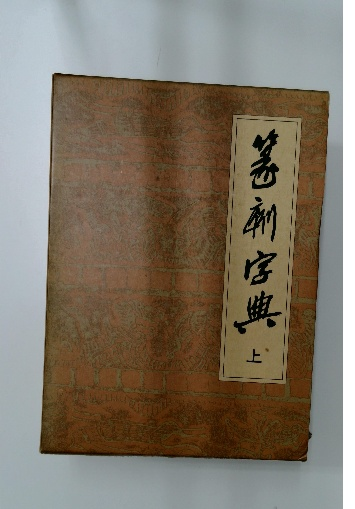 篆刻字典
上